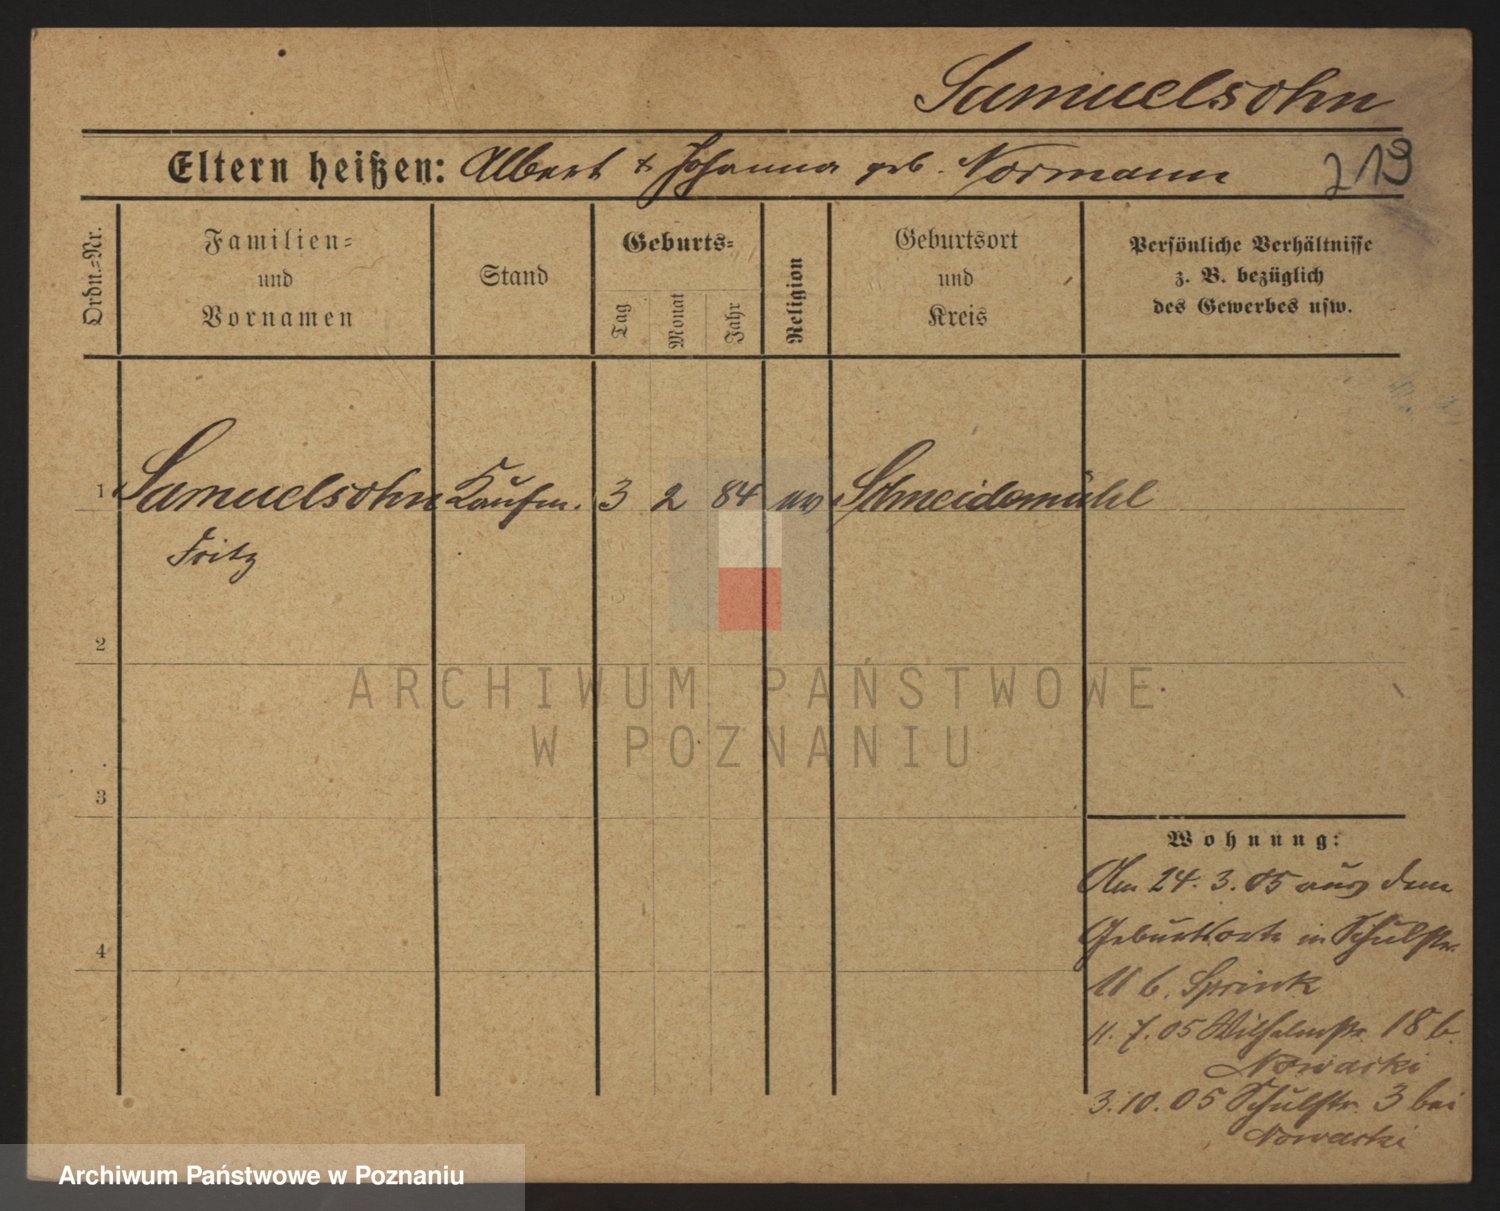 Samuelsohn
Eltern heißen: Albert & Johanna geb. Normann
219
Ordn.=Nr.
Familien=
und
Vornamen
Stand
Geburts=
Tag
Monat
Jahr
Religion
Geburtsort
und
Kreis
Persönliche Verhältnisse
z. B. bezüglich
des Gewerbes usw.
1 Samuelsohn Kaufm. 3 2 84 Schneidemühl
Fritz
2
3
4
ARCHIWUM PAŃSTWOWE
W POZNANIU
Wohnung:
Am 24. 3. 05 aus dem
Geburtsorte in Schulstr.
11 b. Sprink
11. 7. 05 Wilhelmstr. 18 b.
Nowacki
3. 10. 05 Schulstr. 3 bei
Nowacki
Archiwum Państwowe w Poznaniu